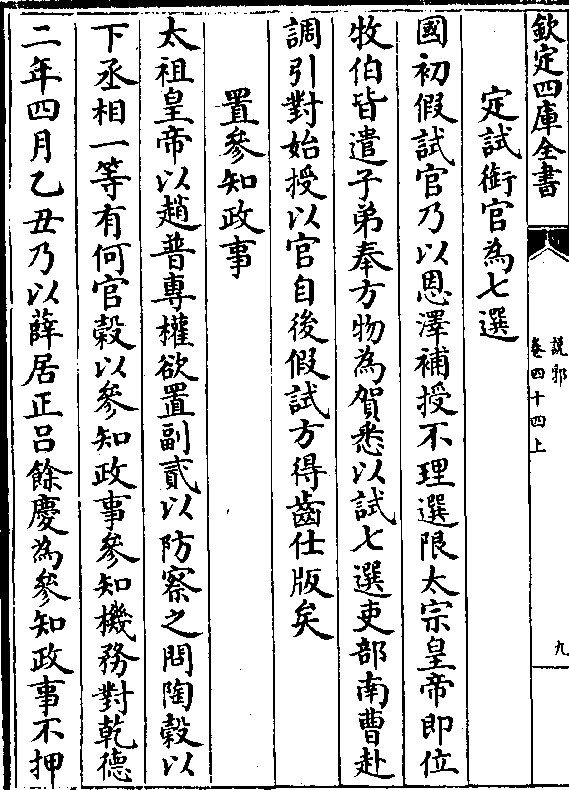 欽定四庫全書
說郛
卷四十四上
九
定試銜官為七選
國初假試官乃以恩澤補授不理選限太宗皇帝即位
牧伯皆遣子弟奉方物為賀悉以試七選吏部南曹赴
調引對始授以官自後假試方得齒仕版矣
置參知政事
太祖皇帝以趙普專權欲置副貳以防察之問陶榖以
下丞相一等有何官榖以參知政事參知機務對乾德
二年四月乙丑乃以薛居正呂餘慶為參知政事不押